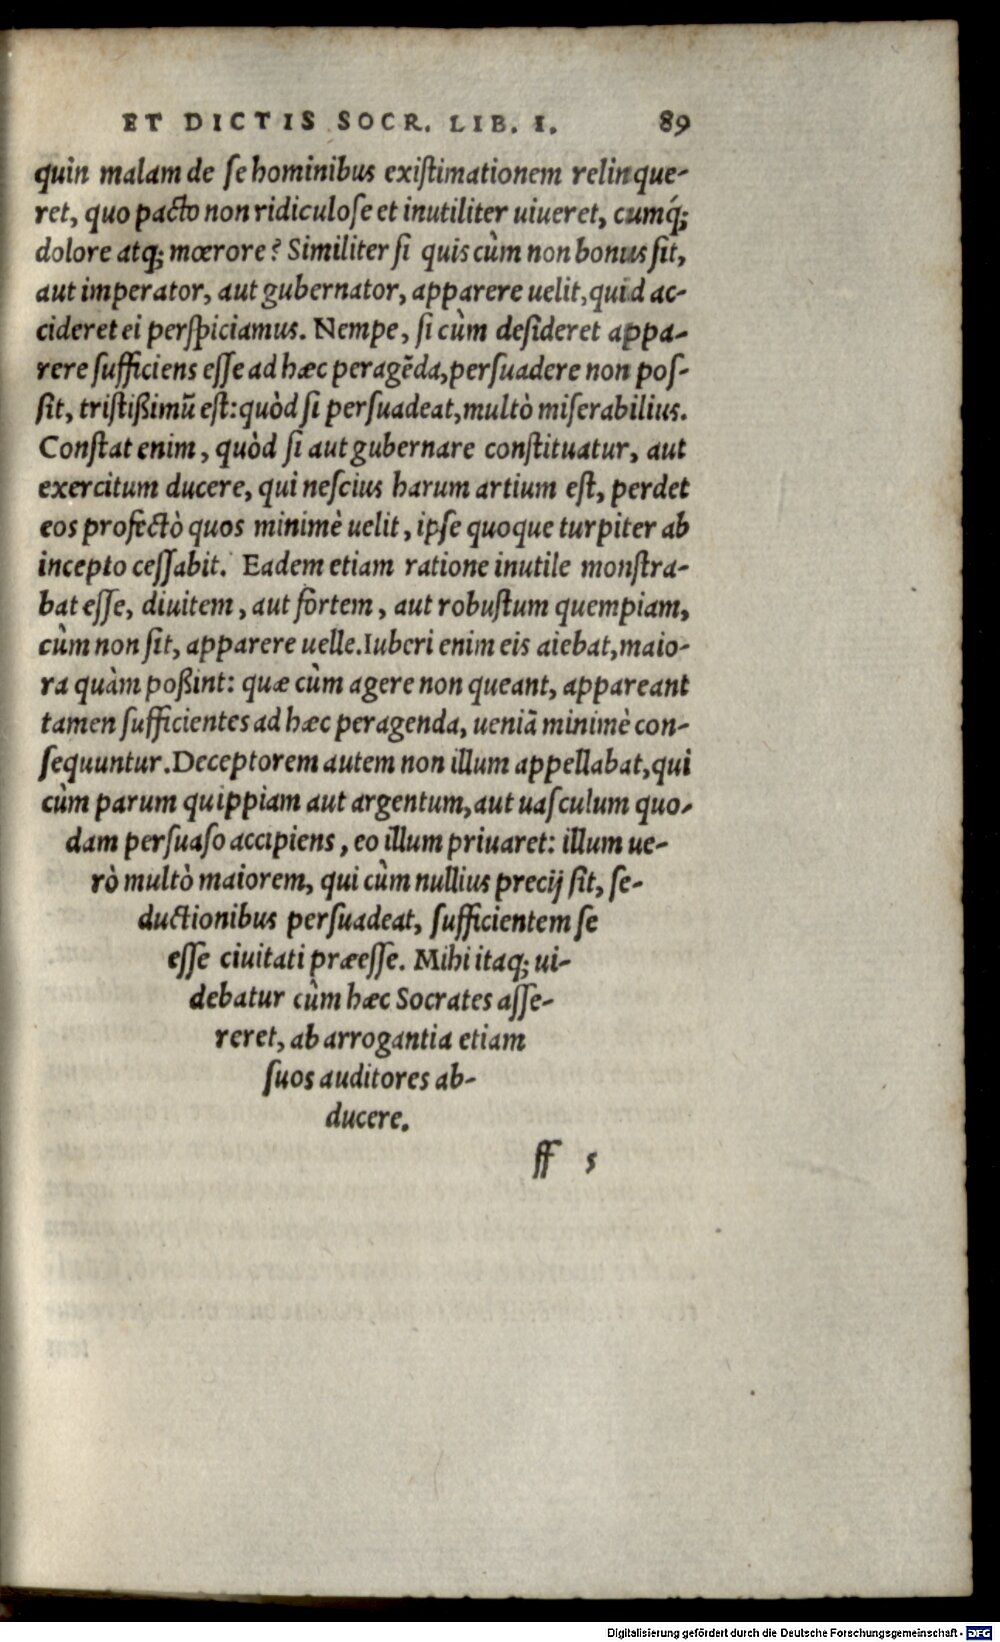 ET DICTIS SOCR. LIB. I. 89
quin malam de ſe hominibus exiſtimationem relinque-
ret, quo pacto non ridiculoſe et inutiliter uiueret, cumq́;
dolore atq; mœrore? Similiter ſi quis cùm non bonus ſit,
aut imperator, aut gubernator, apparere uelit, quid ac-
cideret ei perſpiciamus. Nempe, ſi cùm deſideret appa-
rere ſufficiens eſſe ad hæc peragẽda, perſuadere non poſ-
ſit, triſtißimũ eſt: quòd ſi perſuadeat, multò miſerabilius.
Conſtat enim, quòd ſi aut gubernare conſtituatur, aut
exercitum ducere, qui neſcius harum artium eſt, perdet
eos profectò quos minimè uelit, ipſe quoque turpiter ab
incepto ceſſabit. Eadem etiam ratione inutile monſtra-
bat eſſe, diuitem, aut fortem, aut robuſtum quempiam,
cùm non ſit, apparere uelle. Iuberi enim eis aiebat, maio-
ra quàm poßint: quæ cùm agere non queant, appareant
tamen ſufficientes ad hæc peragenda, ueniã minimè con-
ſequuntur. Deceptorem autem non illum appellabat, qui
cùm parum quippiam aut argentum, aut uaſculum quo-
dam perſuaſo accipiens, eo illum priuaret: illum ue-
rò multò maiorem, qui cùm nullius precij ſit, ſe-
ductionibus perſuadeat, ſufficientem ſe
eſſe ciuitati præeſſe. Mihi itaq; ui-
debatur cùm hæc Socrates aſſe-
reret, ab arrogantia etiam
ſuos auditores ab-
ducere.
ff 5
Digitalisierung gefördert durch die Deutsche Forschungsgemeinschaft - DFG